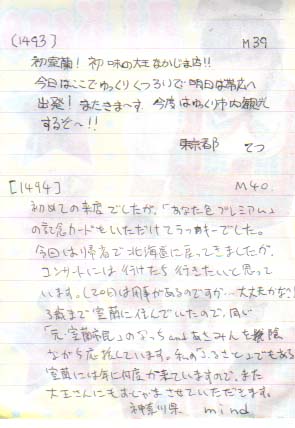 (1493) M39
初室蘭! 初味の大王なかじま店!!
今日はここでゆっくりくつろいで明日は帯広へ
出発! またきま〜す 今度はゆっくり市内観光
するぞ〜!!
東京都 てつ
[1494] M40.
初めての来店でしたが、「あなた色プレミアム」
の記念カードをいただけてラッキーでした。
今回は帰省で北海道に戻ってきましたが、
コンサートには行けたら行きたいと思って
います。(20日は用事があるのですが…大丈夫かな?)
3歳まで室蘭に住んでいたので、同じ
「元・室蘭市民」のなっちandあさみを陰
ながら応援しています。私の「ふるさと」でもある
室蘭には年に何度か来ていますので、また
大王さんにもおじゃまさせていただきます。
神奈川県 mind